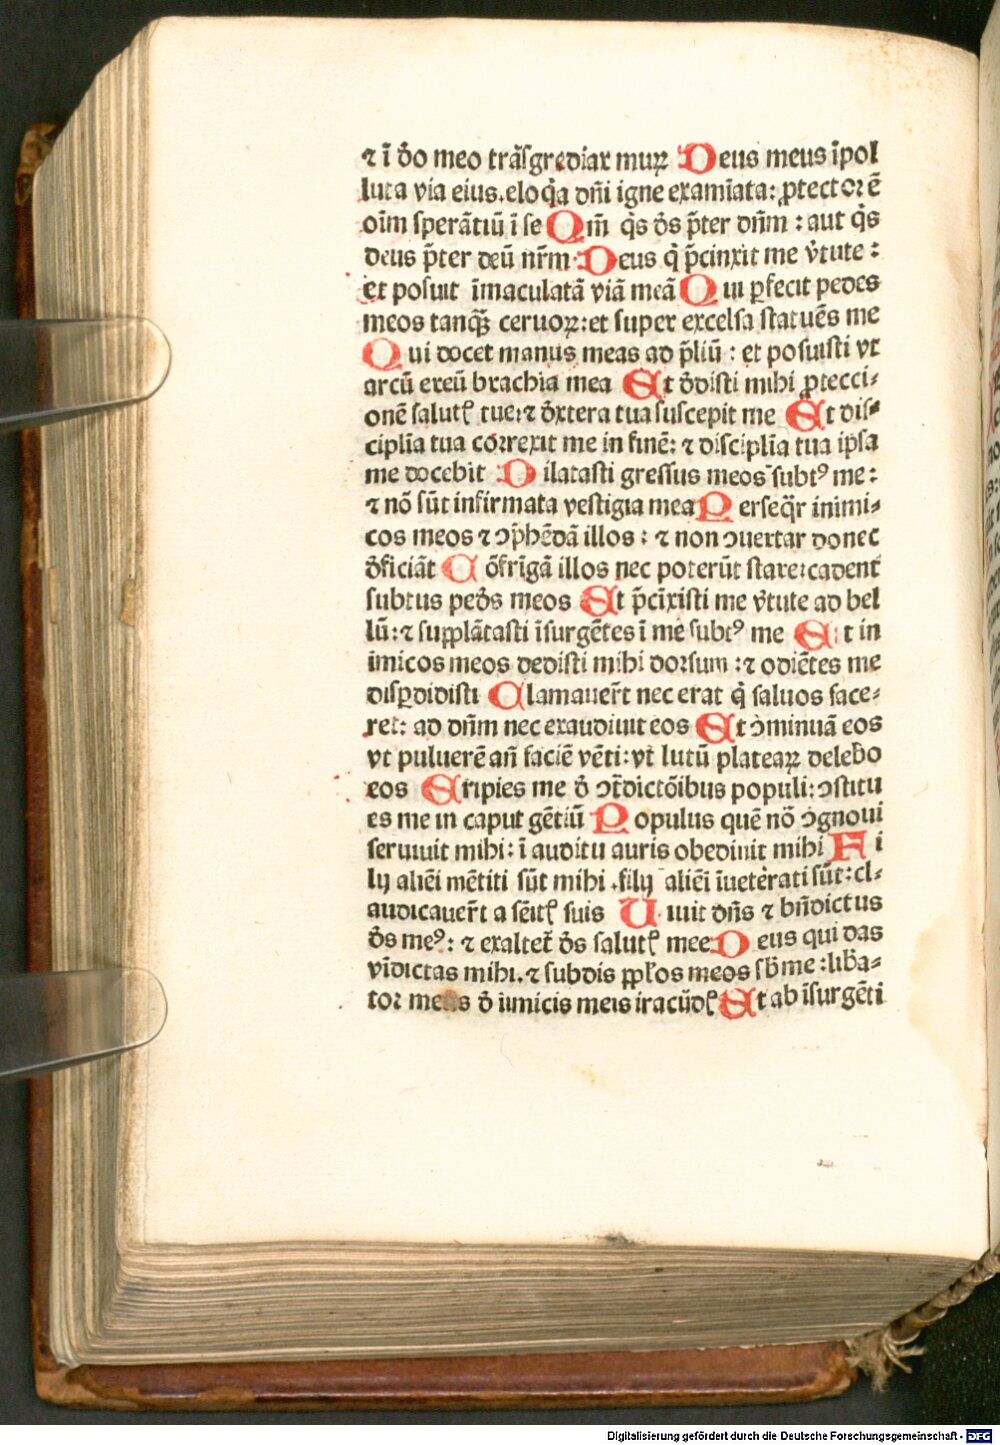 ⁊ ī d̄o meo trāſgrediar murꝝ Deus meus īpol
luta via eius.eloq̄a dn̄i igne examīata: ꝓtector ē
oīm ſperātiū ī ſe Qm̄ q̄s d̄s p̄ter dn̄m : aut q̄s
deus p̄ter deū nr̄m: Deus q̄ p̄cinxit me v̄tute :
et poſuit īmaculatā viā meā Qui ꝑfecit pedes
meos tanqꝫ ceruoꝝ:et ſuper excelſa ſtatuēs me
Qui docet manus meas ad p̄liū : et poſuiſti vt
arcū ereū brachia mea Et d̄diſti mihi ꝓtecci⸗
onē ſalutꝭ tue:⁊ d̄xtera tua ſuſcepit me Et diſ⸗
ciplīa tua correxit me in finē: ⁊ diſciplīa tua ipſa
me docebit Dilatasti greſſus meos ſubtꝰ me :
⁊ nō ſūt infirmata veſtigia mea Perſeq̄r inimi⸗
cos meos ⁊ ↄp̄hēdā illos : ⁊ non ↄuertar donec
d̄ficiāt Cōfrīgā illos nec poterūt ſtare:cadent
ſubtus ped̄s meos Et p̄cīxiſti me v̄tute ad bel
lū:⁊ ſupplātaſti īſurgētes ī me ſubtꝰ me Et in
imicos meos dediſti mihi dorſum :⁊ odiētes me
diſꝑdidiſti Clamauer̄t nec erat q̄ ſaluos face⸗
ret: ad dn̄m nec exaudiuit eos Et ↄminuā eos
vt puluerē an̄ faciē vēti:vt lutū plateaꝝ deleb̄o
eos Eripies me d̄ ↄt̄dictōibus populi: ↄſtitu
es me in caput gētiū Populus quē nō ↄgnoui
ſeruiuit mihi: ī auditu auris obediuit mihi Fi
lij aliēi mētiti ſūt mihi .filij aliēi īueterati ſūt:cl⸗
audicauer̄t a ſēitꝭ ſuis Uiuit dn̄s ⁊ bn̄dictus
d̄s meꝰ: ⁊ exaltet̄ d̄s ſalutꝭ mee Deus qui das
vīdictas mihi.⁊ ſubdis ppl̄os meos ſb̄ me :lib̄a⸗
tor meus d̄ iimicis meis iracūdꝭ Et ab īſurgēti
Digitalisierung gefördert durch die Deutsche Forschungsgemeinschaft - DFG